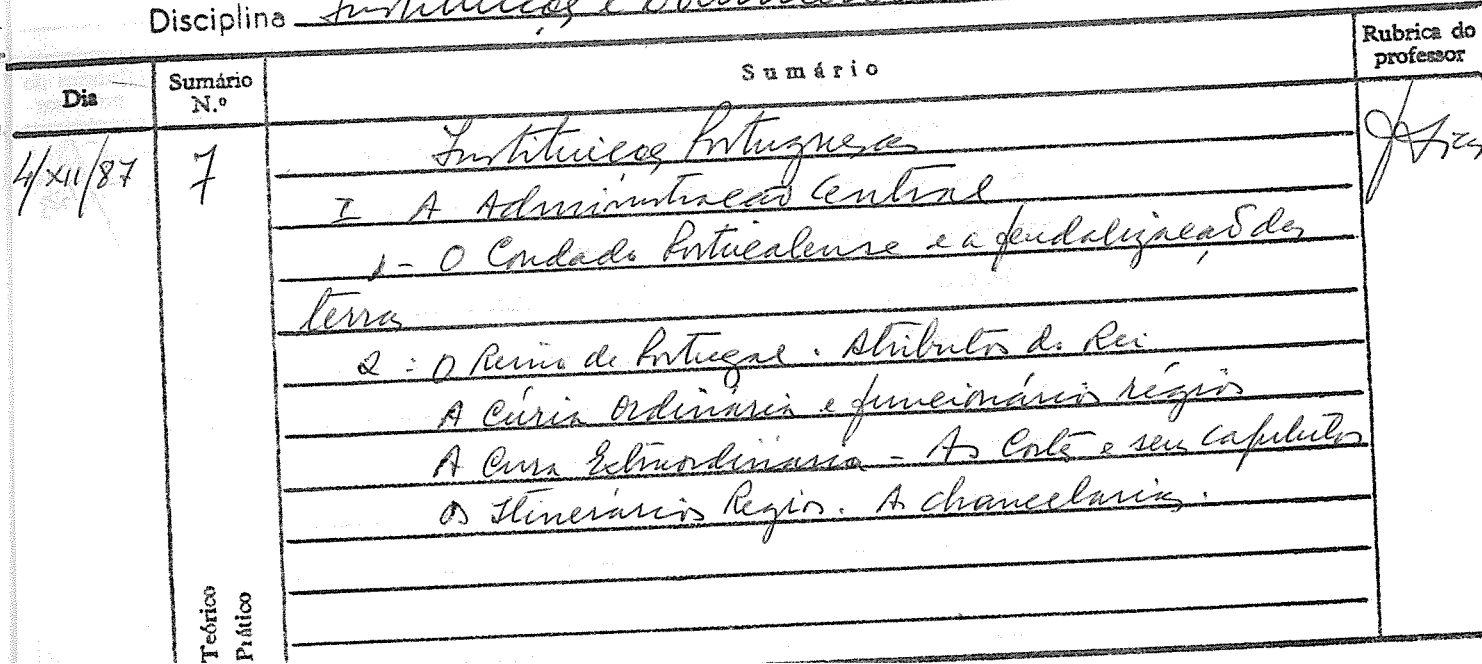 Disciplina Instituições e
Dia
Sumário N.º
Sumário
Rubrica do professor
4/XII/87
7
Instituições Portuguesas
I A Administração Central
1 - O Condado Portucalense e a feudalização das
terras
2 - O Reino de Portugal. Atributos do Rei
A Cúria Ordinária e funcionários régios
A Cúria Extraordinária - As Cortes e seus capítulos
Os Itinerários Régios. A chancelaria.
Teórico
Prático